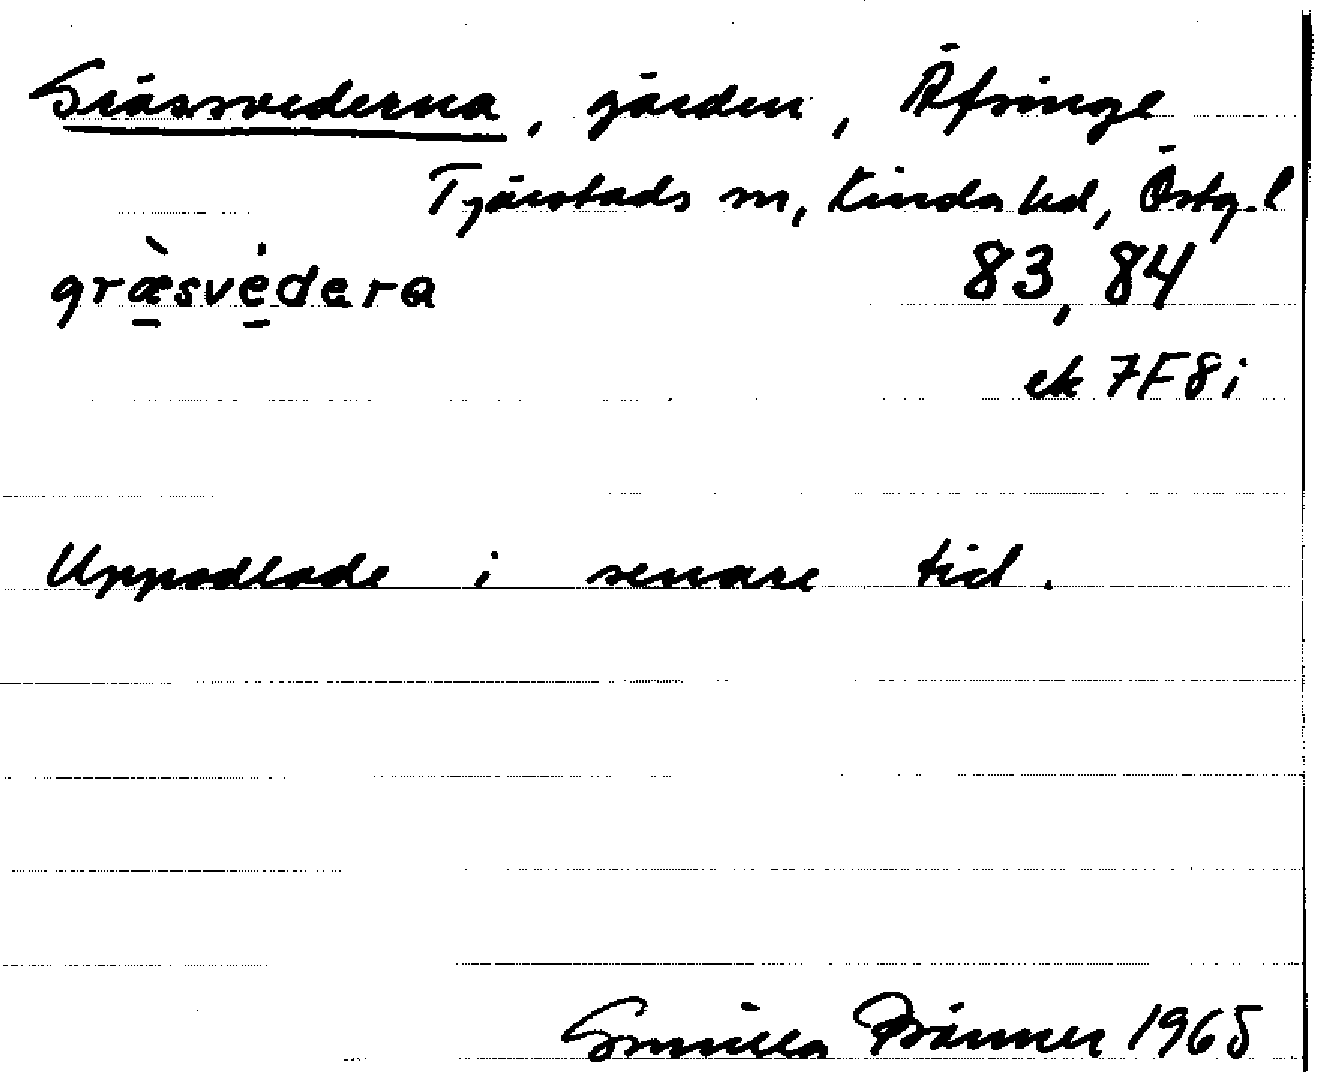 Grässvederna, gärden, Äfsinge
Tjärstads sn, Kinda hd, Östg.l
græ̀svédera 83, 84
ek 7F8i
Uppodlade i senare tid.
Gunilla Bränner 1965